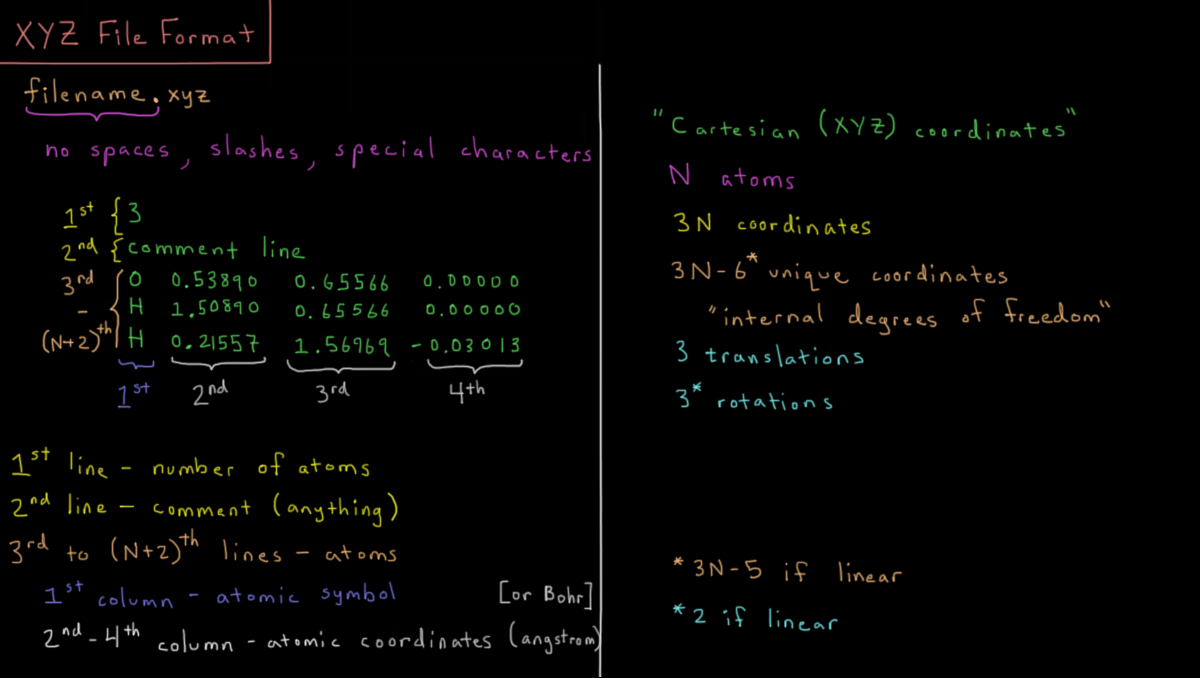 XYZ File Format
filename.xyz
no spaces, slashes, special characters
1st { 3
2nd { comment line
3rd { O 0.53890 0.65566 0.00000
- H 1.50890 0.65566 0.00000
(N+2)th H 0.21557 1.56969 -0.03013
1st 2nd 3rd 4th
1st line - number of atoms
2nd line - comment (anything)
3rd to (N+2)th lines - atoms
1st column - atomic symbol [or Bohr]
2nd - 4th column - atomic coordinates (angstrom)
"Cartesian (XYZ) coordinates"
N atoms
3N coordinates
3N-6* unique coordinates
"internal degrees of freedom"
3 translations
3* rotations
*3N-5 if linear
*2 if linear